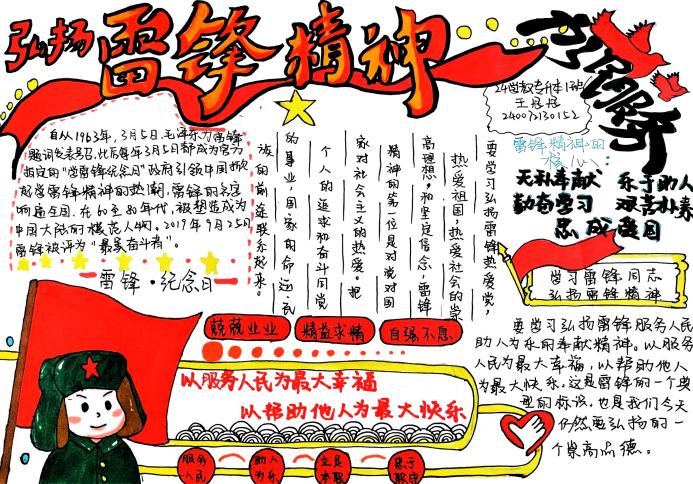 弘扬
雷锋精神
为人民服务
24学教专升本1班
240072130152
自从1963年,3月5日,毛泽东为雷锋
题词发表号召,此后每年3月5日都成为官方
指定的"学雷锋纪念日"政府引领中国掀
起学雷锋精神的热潮,雷锋的名字
响遍全国.在60至80年代,被塑造成为
中国大陆的模范人物。2019年9月25日
雷锋被评为"最美奋斗者"。
雷锋·纪念日
要学习弘扬雷锋热爱党,
热爱祖国,热爱社会的崇
高理想,和坚定信念,雷锋
精神的第一位是对党对国
家对社会主义的热爱。把
个人的追求和奋斗同党
的事业,国家的命运,民
族的前途联系起来。
雷锋精神的
核心:
无私奉献 乐于助人
勤奋学习 艰苦朴素
忠诚爱国
学习雷锋同志
弘扬雷锋精神
兢兢业业 精益求精 自强不息
以服务人民为最大幸福
以帮助他人为最大快乐
服务人民 助人为乐 立足本职
要学习弘扬雷锋服务人民
助人为乐的奉献精神。以服务
人民为最大幸福,以帮助他人
为最大快乐,这是雷锋的一个典
型的标识,也是我们今天
仍然要弘扬的一
个崇高品德。